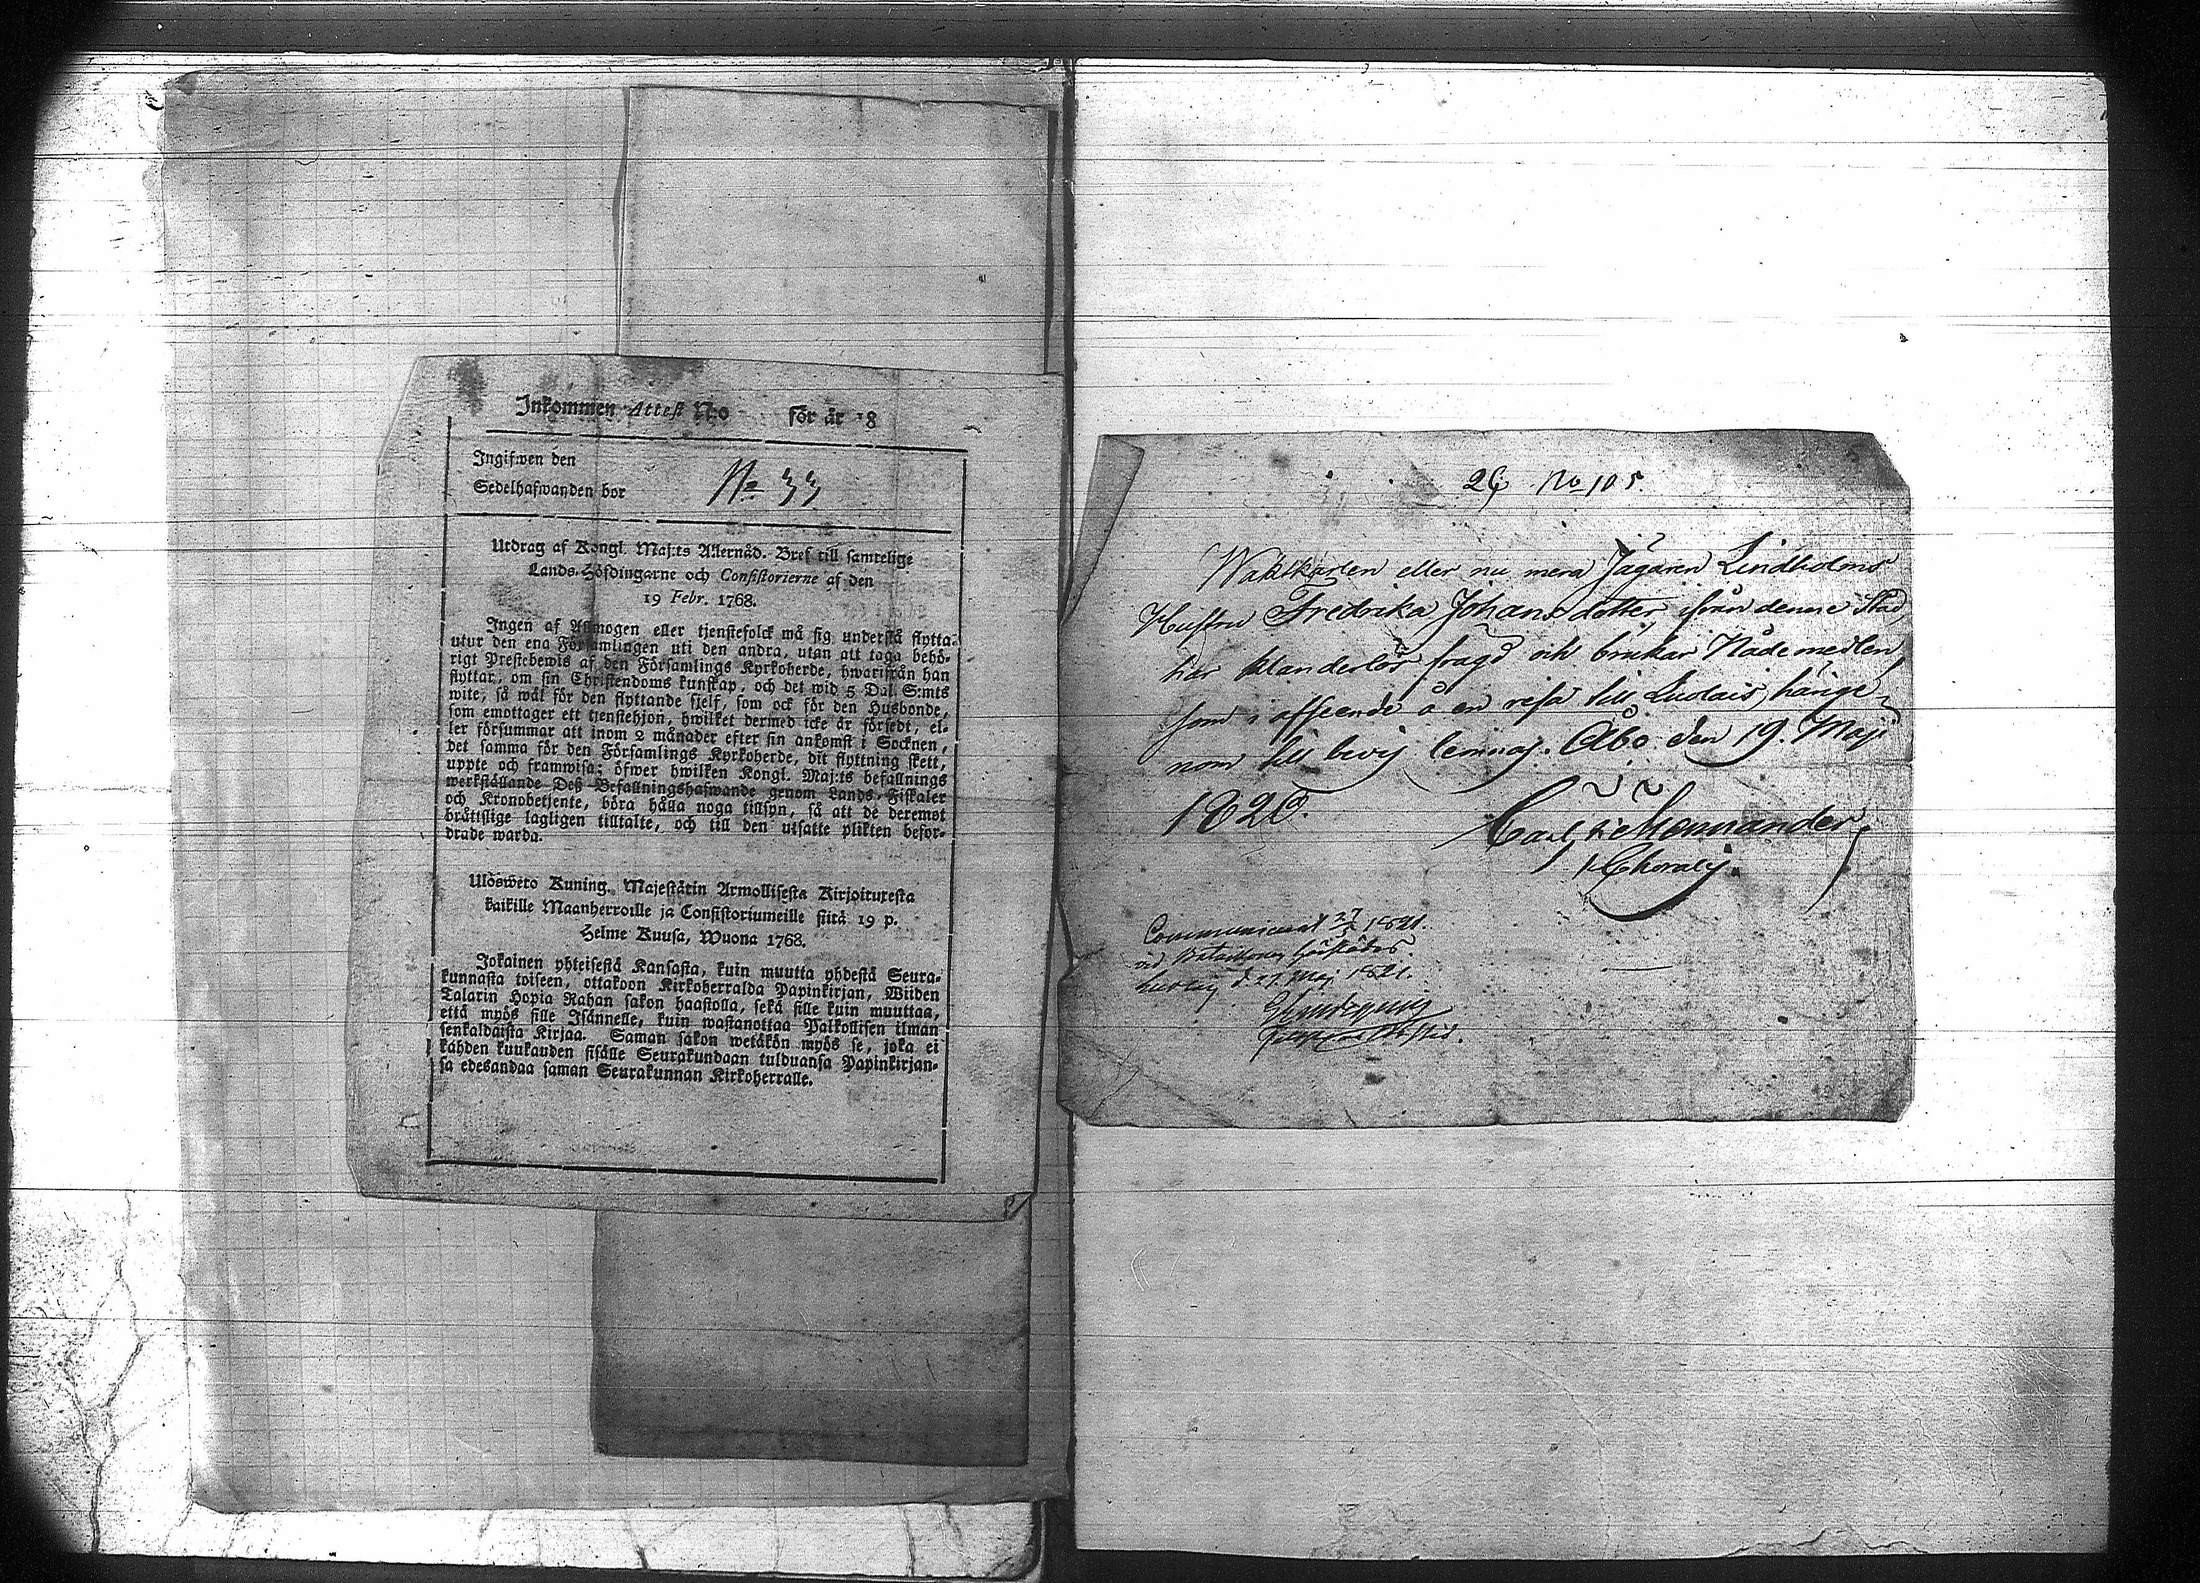 Inkommen Attest N:o för år 18
Ingifwen den
Sedelhafwanden bor
No 33
Utdrag af Kongl. Maj:ts Allernåd. Bref till samtelige
Lands-Höfdingarne och Consistorierne af den
19 Febr. 1768.
Ingen af Allmogen eller tjenstefolck må sig understå flytta
utur den ena Församlingen uti den andra, utan att taga behö-
rigt Prestebewis af den Församlings Kyrkoherde, hwarifrån han
flyttar, om sin Christendoms kunskap, och det wid 5 Dal. S:mts
wite, så wäl för den flyttande sjelf, som ock för den Husbonde,
som emottager ett tjenstehjon, hwilket dermed icke är försedt, el-
ler försummar att inom 2 månader efter sin ankomst i Socknen,
det samma för den Församlings Kyrkoherde, dit flyttning skett,
uppte och framwisa; öfwer hwilken Kongl. Maj:ts befallnings
werkställande Deß Befallningshafwande genom Lands-Fiskaler
och Kronobetjente, böra hålla noga tillsyn, så att de deremot
bråttslige lagligen tilltalte, och till den utsatte plikten befor-
drade warda.
Ulosweto Kuning. Majestätin Armollisesta Kirjoituxesta
kaikille Maanherroille ja Consistoriumeille siitä 19 p.
Helme Kuusa, Wuona 1768.
Jokainen yhteisestä Kansasta, kuin muutta yhdestä Seura-
kunnasta toiseen, ottakoon Kirkoherralda Papinkirjan, Wiiden
Talarin Hopia Rahan sakon haastolla, sekä sille kuin muuttaa,
että myös sille Isännelle, kuin wastanottaa Palkollisen ilman
senkaldaista Kirjaa. Saman sakon wetäkön myös se, joka ei
kahden kuukauden sisälle Seurakundaan tulduansa Papinkirjan-
sa edesandaa saman Seurakunnan Kirkoherralle.
26 No 105.
eller nu mera Jägaren Lindholms
Hustru Fredrika Johansdotter, ifrån denne Stad,
har klanderlös frägd och brukar Nådemedlen,
som i afseende å en resa till härige-
nom till bevis lemnas. Åbo den 19. Maji
1820.
Carl Fr. Mennander
Communicerat 27/5 1821.
d. 27 Maj 1821.